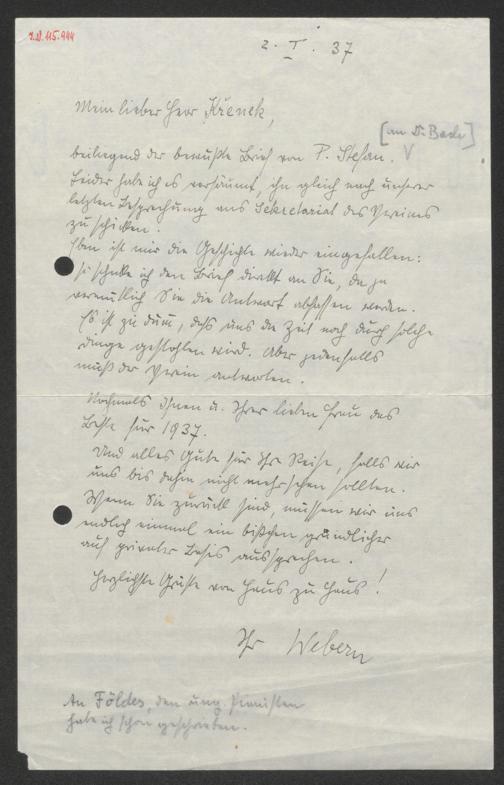 I.N. 115.944
2. I. 37
Mein lieber Herr Křenek,
[an Dr. Bach]
beiliegend der bewußte Brief von P. Stefan. V
Leider habe ich es versäumt, ihn gleich nach unserer
letzten Besprechung ans Sekretariat des Vereines
zu schicken.
Eben ist mir die Geschichte wieder eingefallen:
so schicke ich den Brief direkt an Sie, da ja
vermutlich Sie die Antwort abfassen werden.
Es ist zu dumm, daß uns die Zeit noch durch solche
Dinge gestohlen wird. Aber jedenfalls
muß der Verein antworten.
Nochmals Ihnen u. Ihrer lieben Frau das
Beste für 1937.
Und alles Gute für Ihre Reise, falls wir
uns bis dahin nicht mehr sehen sollten.
Wenn Sie zurück sind, müssen wir uns
endlich einmal ein bißchen gründlicher
auf privater Basis aussprechen.
Herzlichste Grüße von Haus zu Haus!
Ihr Webern
An Földes, den ung. Pianisten
habe ich schon geschrieben.